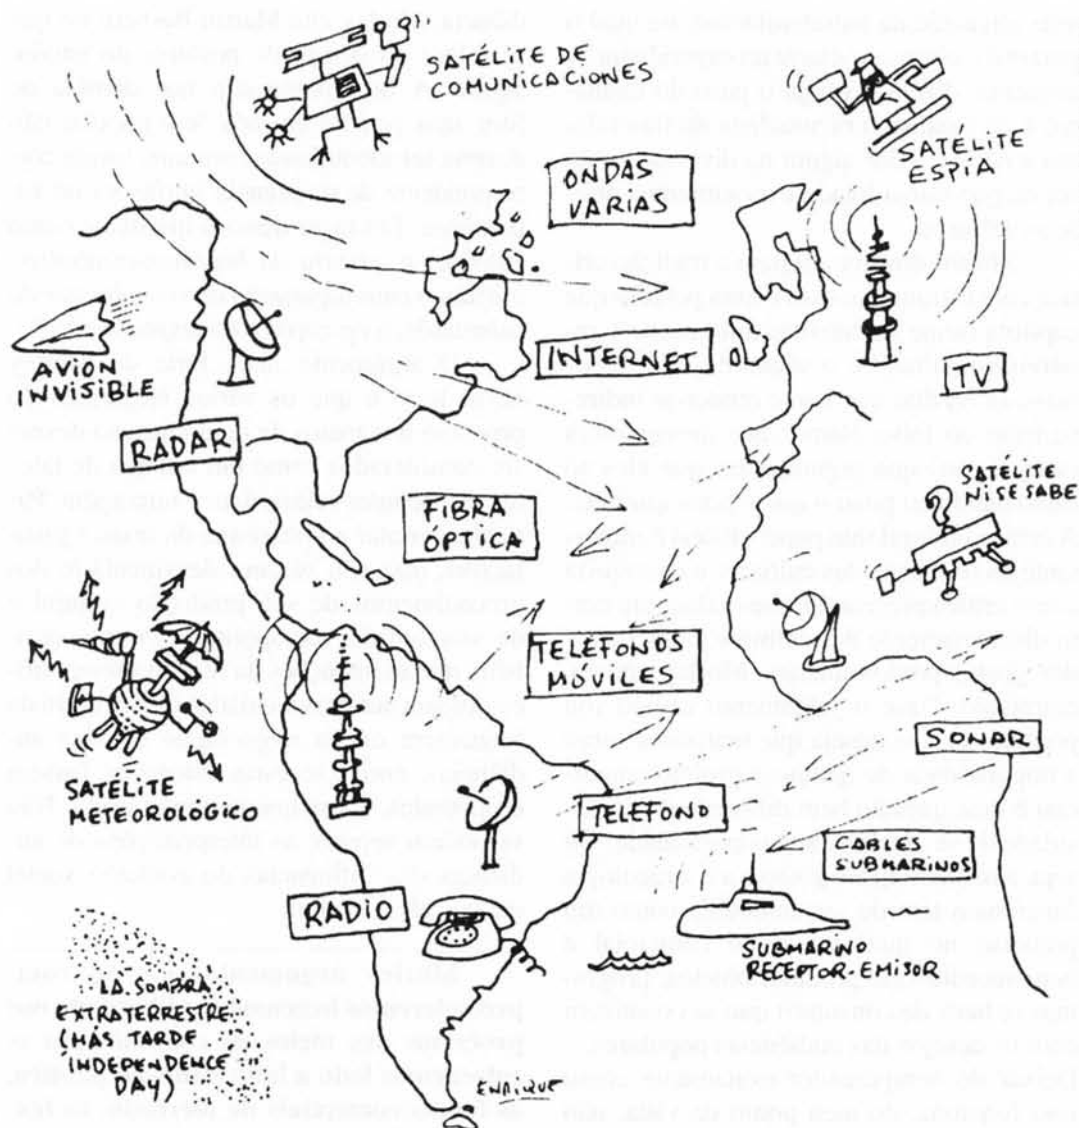 SATÉLITE DE
COMUNICACIONES
SATÉLITE
ESPÍA
ONDAS
VARIAS
AVION
INVISIBLE
INTERNET
TV
RADAR
SATÉLITE
NI SE SABE
FIBRA
ÓPTICA
TELÉFONOS
MÓVILES
SONAR
SATÉLITE
METEOROLÓGICO
TELÉFONO
CABLES
SUBMARINOS
RADIO
SUBMARINO
RECEPTOR-EMISOR
LA SOMBRA
EXTRATERRESTRE
(MAS TARDE
INDEPENDENCE
DAY)
ENRIQUE